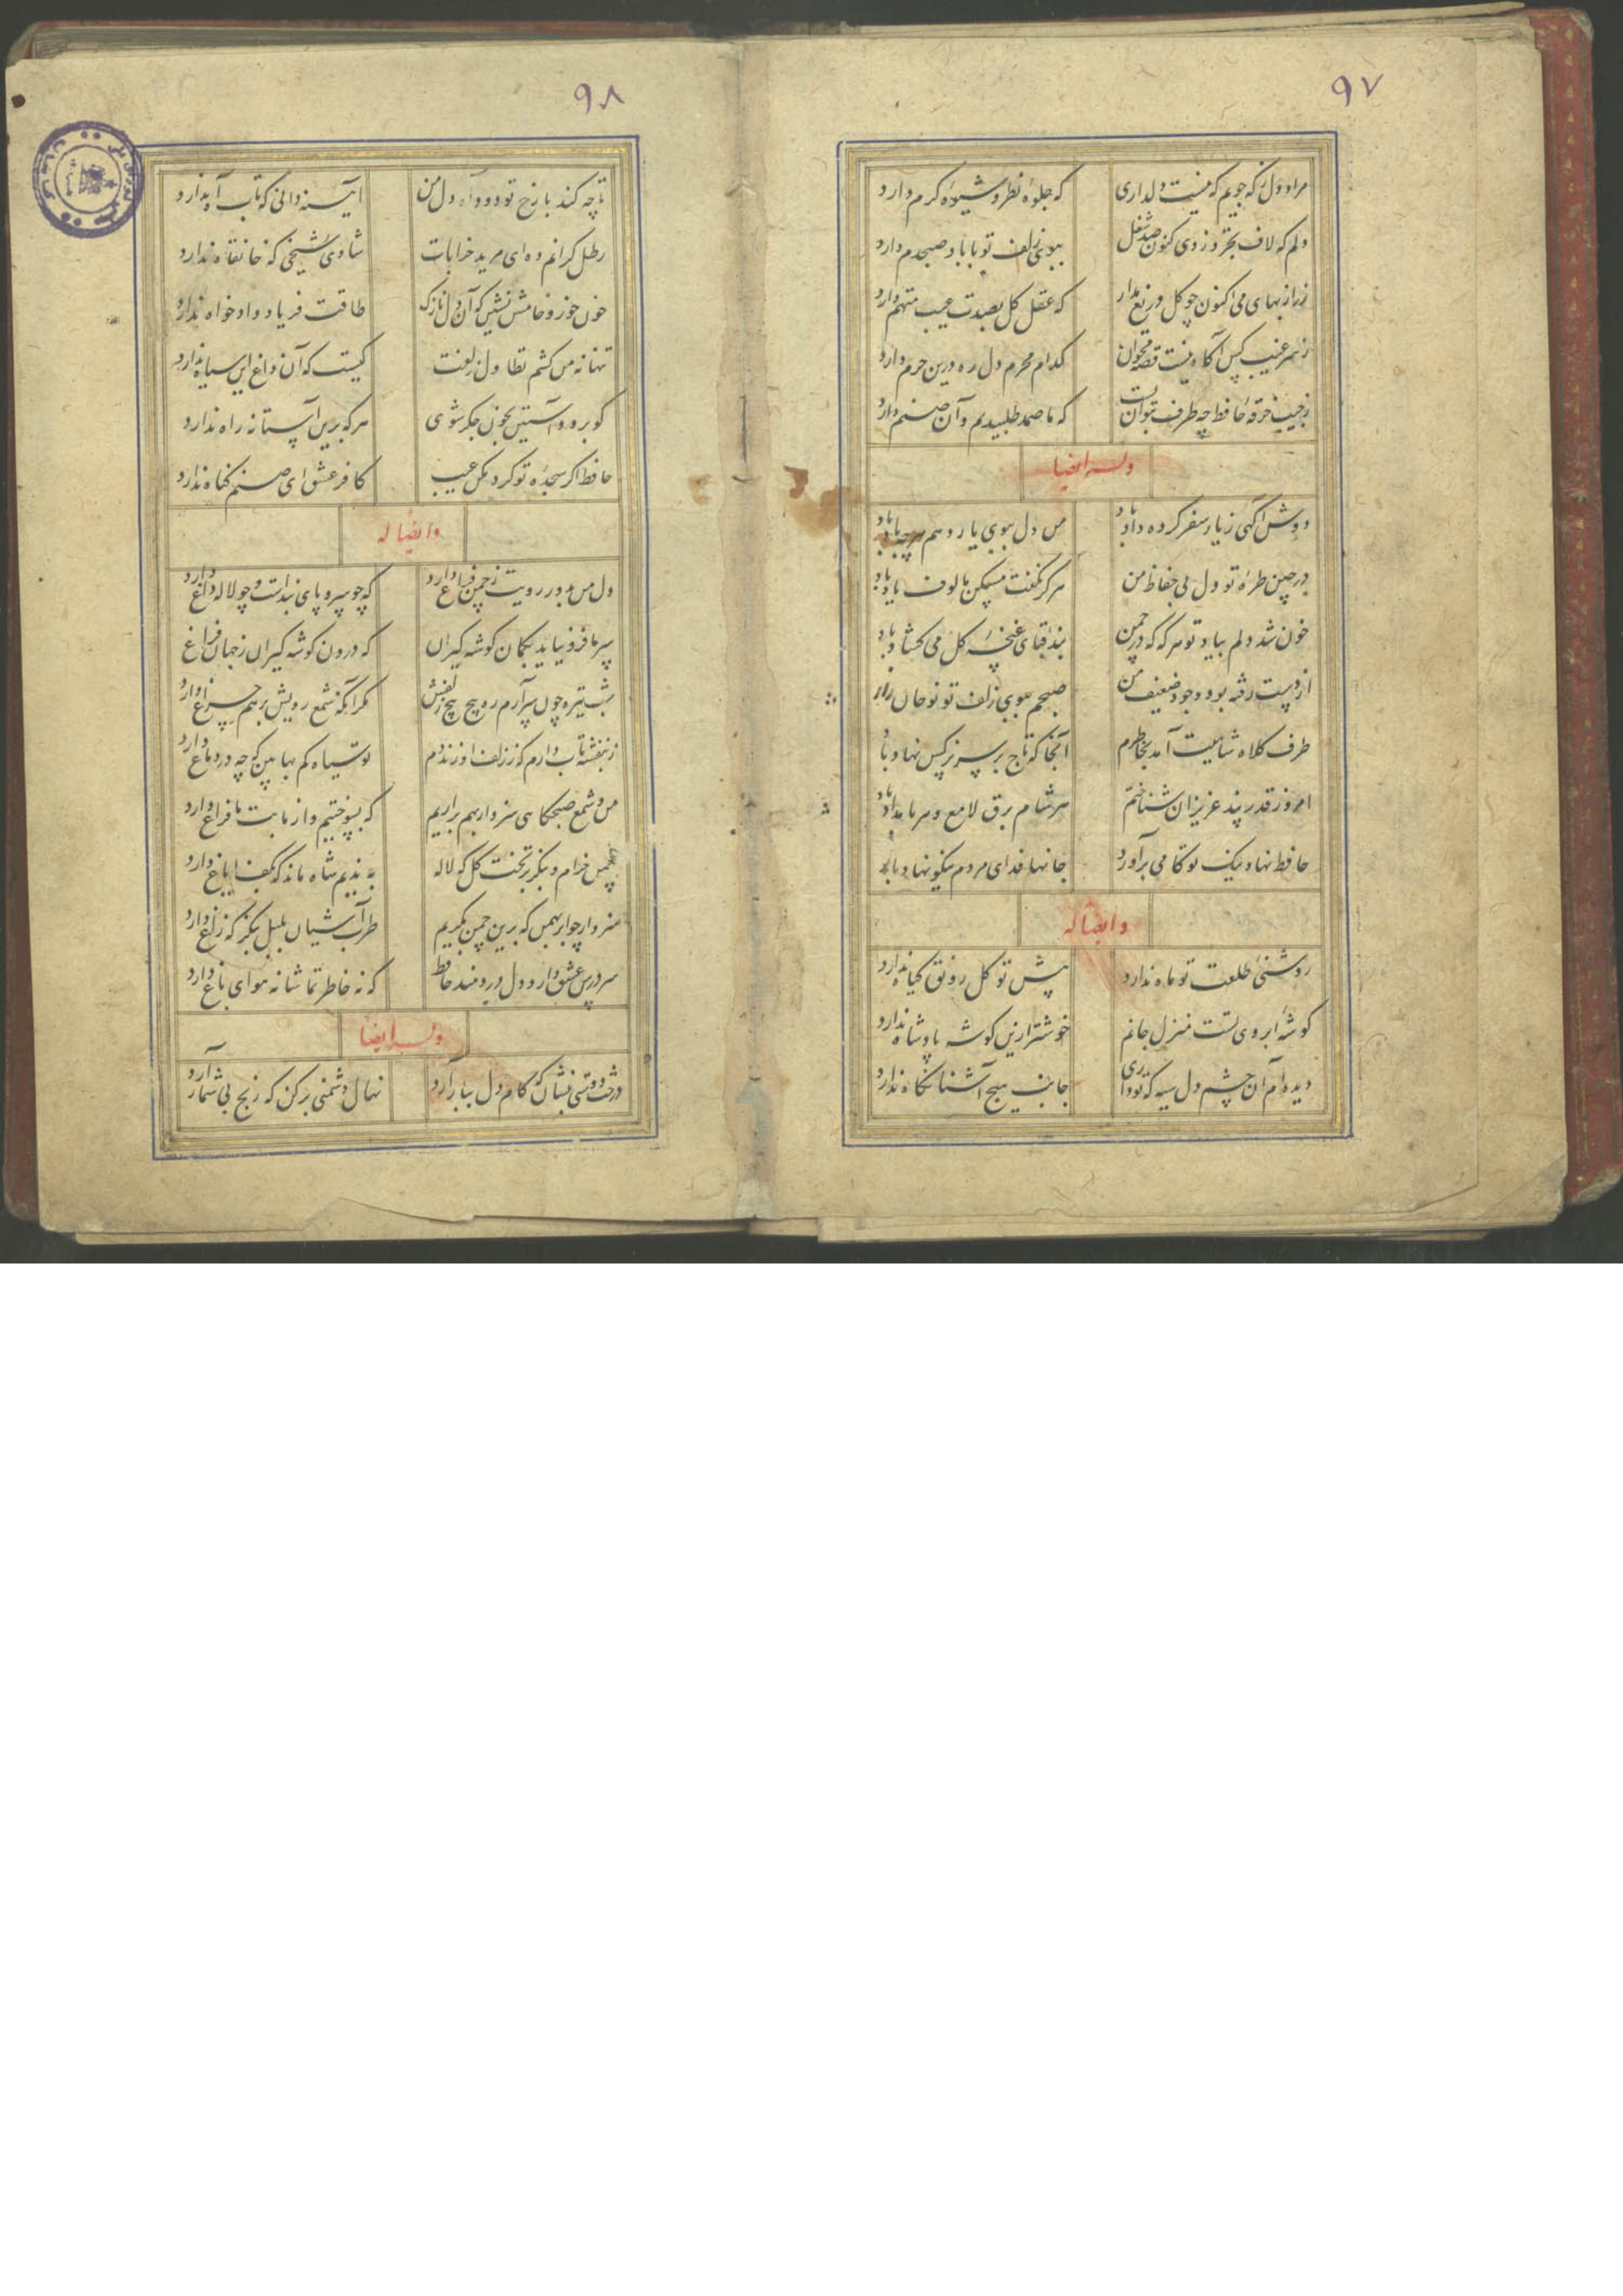 ۹۷
مراد دل ز که جویم که نیست دلداری که جلوه نظر و شیوه کرم دارد
دلم که لاف تجرد زدی کنون صد شغل ببوی زلف تو با باد صبحدم دارد
زر از بهای می اکنون چو کل دریغ مدار که عقل کل بصدت عیب متهم دارد
ز سر غیب کس آکاه نیست قصه مخوان کدام محرم دل ره درین حرم دارد
ز جیب خرقه حافظ چه طرف بتوان بست که ما صمد طلبیدیم و آن صنم دارد
وله ایضا
دوش آکهی ز یار سفر کرده داد باد من دل ببوی یار دهم هر چه باد باد
در چین طره تو دل بی حفاظ من هرکز نکفت مسکن مالوف یاد باد
خون شد دلم بیاد تو هر که که در چمن بند قبای غنچه کل می کشاد باد
از دست رفته بود وجود ضعیف من صبحم ببوی زلف تو نو جان
طرف کلاه شاهیت آمد بخاطرم آنجا که تاج بر سر نرکس نهاد باد
امروز قدر پند عزیزان شناختم هر شام برق لامع و هر بامداد باد
حافظ نهاد نیک تو کامی برآورد جانها فدای مردم نیکو نهاد باد
وایضا له
روشنی طلعت تو ماه ندارد پیش تو کل رونق کیاه ندارد
کوشه ابروی تست منزل جانم خوشتر ازین کوشه پادشاه ندارد
دیده ام آن چشم دل سیه که تو داری جانب هیچ آشنا نکاه ندارد
۹۸
تا چه کند با رخ تو دود دل من آینه دانی که تاب آه ندارد
رطل کرانم ده ای مرید خرابات شادی شیخی که خانقاه ندارد
خون خور و خامش نشین که آن دل نازک طاقت فریاد دادخواه ندارد
تنها نه من کشم تطاول زلفت کیست که آن داغ این سیاه ندارد
کو برو و آستین بخون جکر شوی هر که برین آستانه راه ندارد
حافظ اکر سجده تو کرد مکن عیب کافر عشق ای صنم کناه ندارد
وایضا له
دل من بدور رویت ز چمن فراغ دارد که چو سرو پای بندست و چو لاله داغ دارد
سر ما فرو نیاید بکمان کوشه کیران که درون کوشه کیران ز جهان فراغ
شب تیره چون سر آرم ره پیچ پیچ زلفش مکر آنکه شمع رویش برهم چراغ دارد
ز بنفشه تاب دارم که ز زلف او زند دم تو سیاه کم بها بین که چه در دماغ دارد
من و شمع صبحکاهی سزد ار بهم براریم که بسوختیم و از ما بت ما فراغ دارد
بچمن خرام و بنکر بر تخت کل که لاله به ندیم شاه ماند که بکف ایاغ دارد
سزد ار چو ابر بهمن که برین چمن بکریم طرب آشیان بلبل بنکر که زاغ دارد
سر درس عشق دارد دل دردمند حافظ که نه خاطر تماشا نه هوای باغ دارد
وله ایضا
درخت دوستی بنشان که کام دل ببار آرد نهال دشمنی برکن که رنج بی شمار آرد